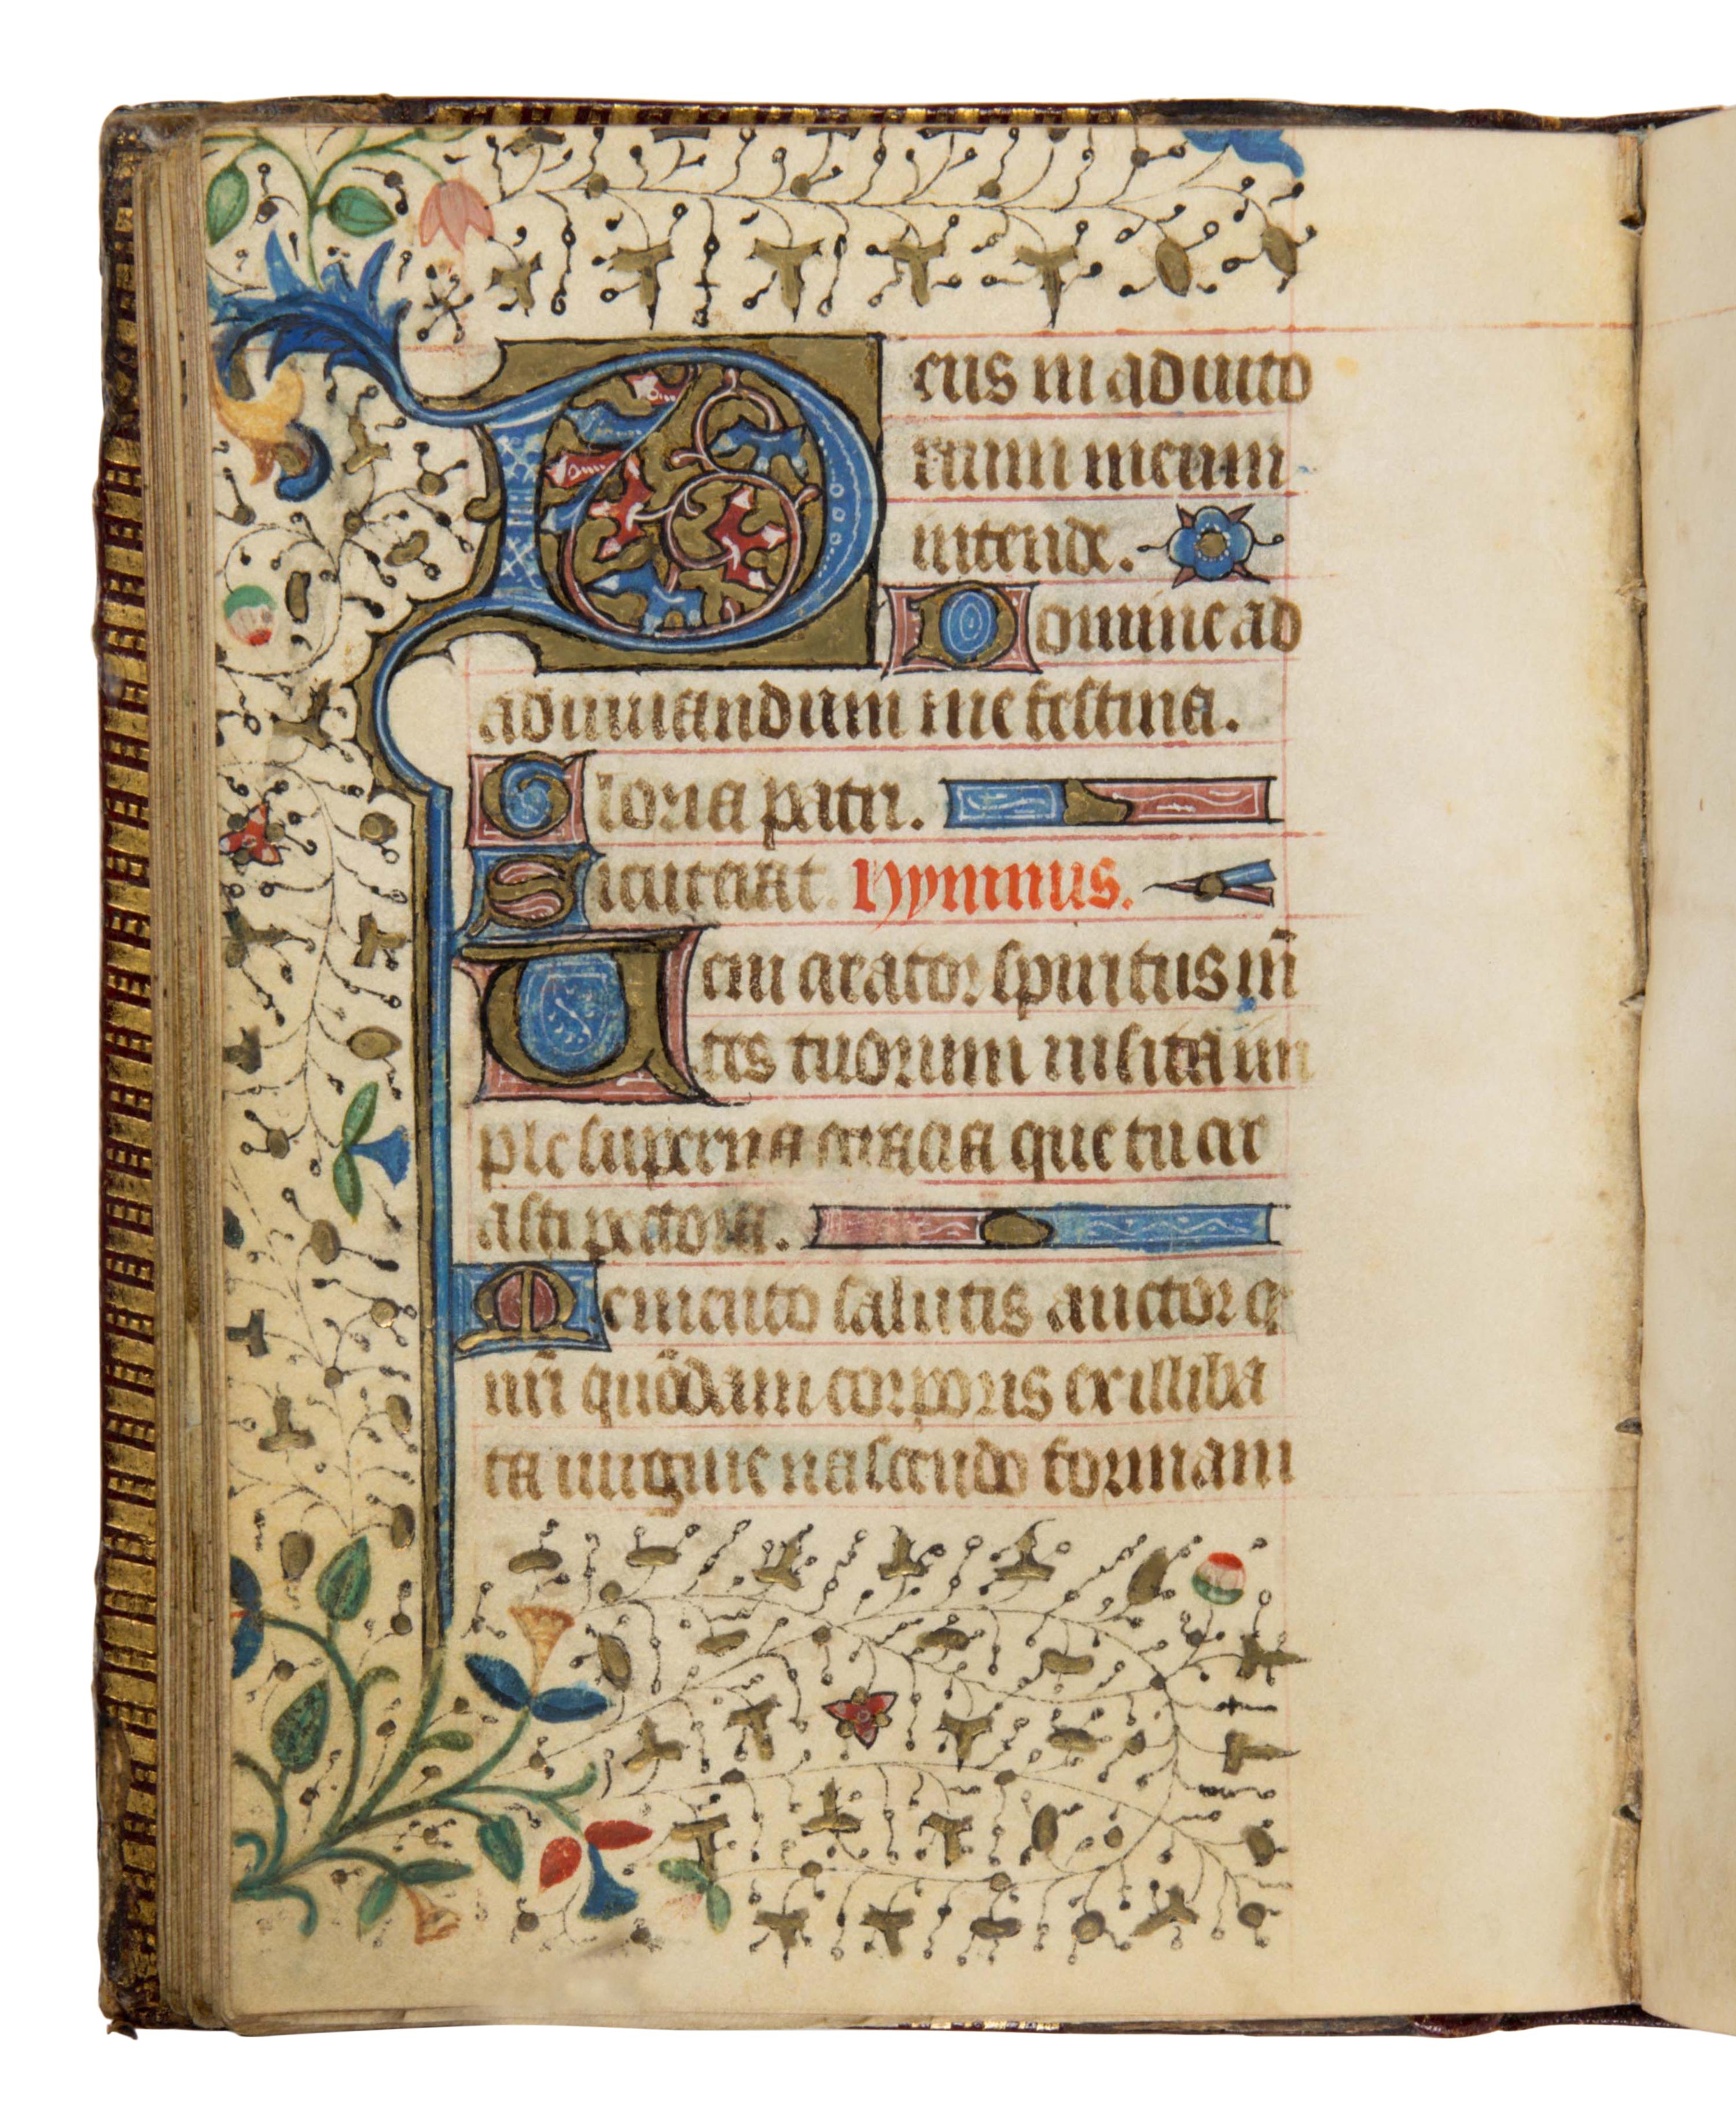 Deus in adiuto
rium meum
intende.
Domine ad
adiuuandum me festina.
Gloria patri.
Sicut erat. Hymnus.
Ueni creator spiritus m̄
tes tuorum uisita im
ple superna gracia que tu cre
asti pectora.
Memento salutis auctor q
nr̄i quōdam corporis ex illiba
ta uirgine nascendo formam